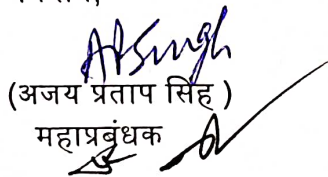 APSingh
(अजय प्रताप सिंह )
महाप्रबंधक